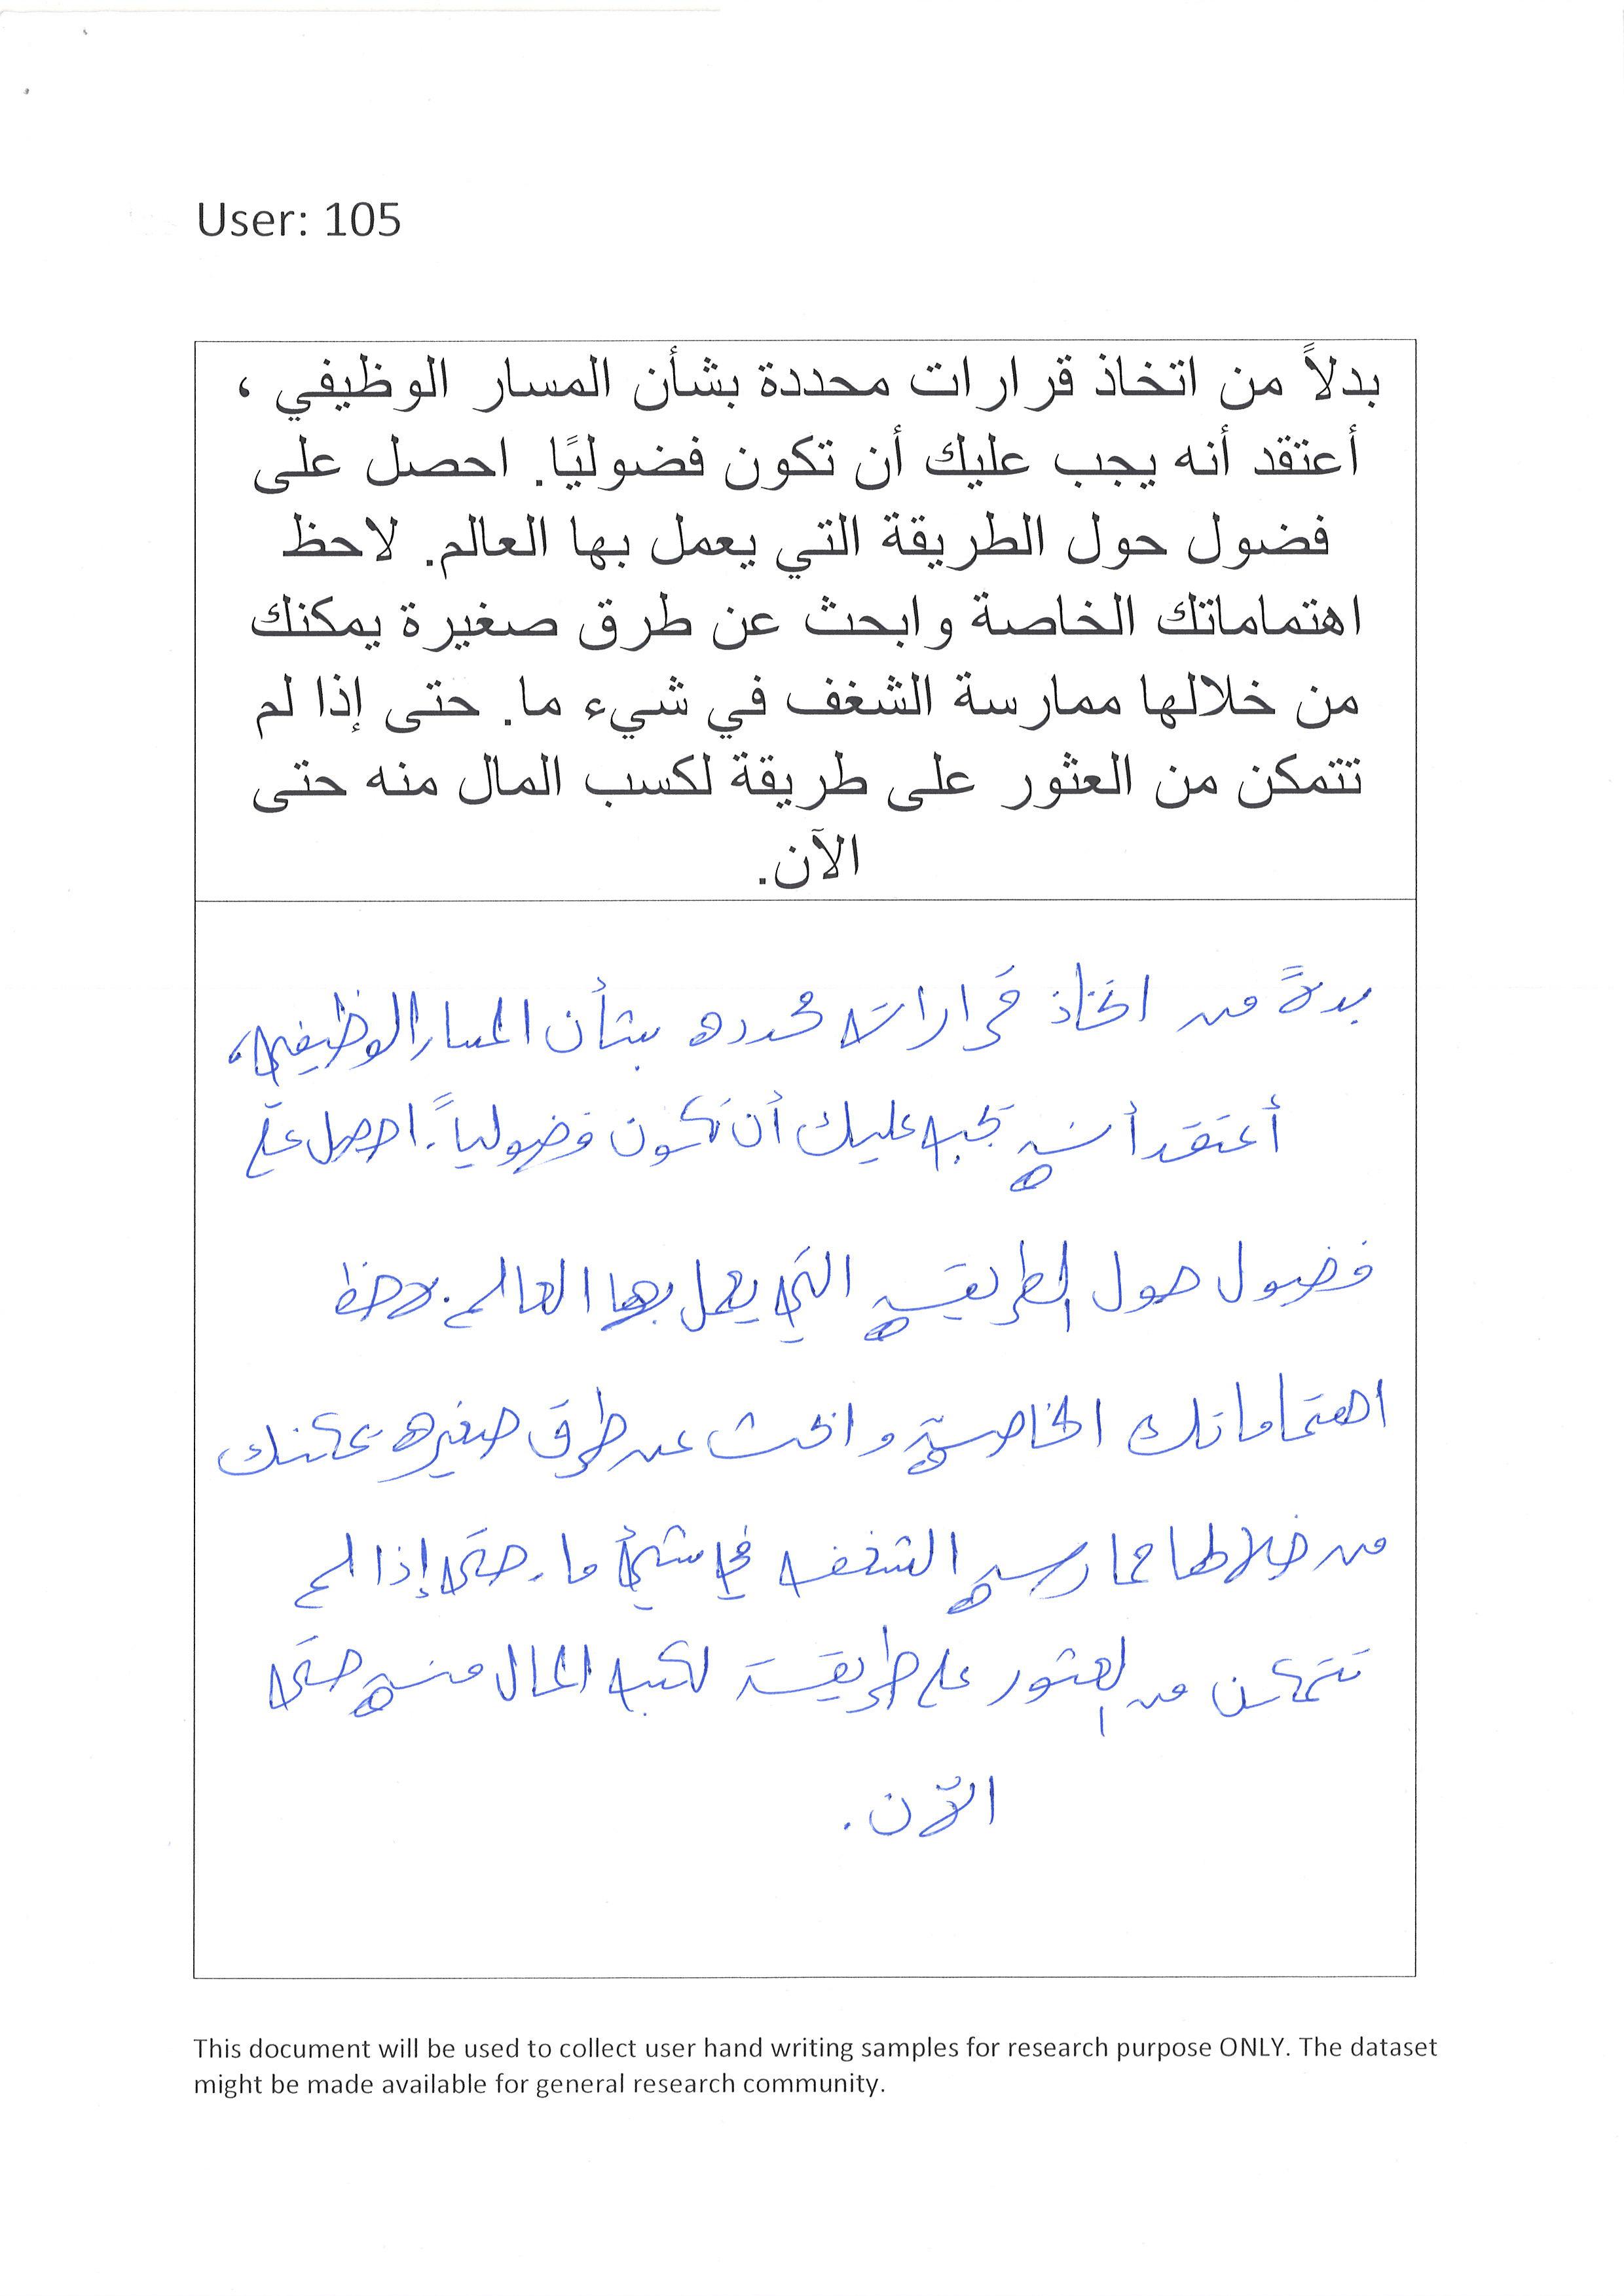 User: 105
بدلاً من اتخاذ قرارات محددة بشأن المسار الوظيفي ،
أعتقد أنه يجب عليك أن تكون فضوليًا. احصل على
فضول حول الطريقة التي يعمل بها العالم. لاحظ
اهتماماتك الخاصة وابحث عن طرق صغيرة يمكنك
من خلالها ممارسة الشغف في شيء ما. حتى إذا لم
تتمكن من العثور على طريقة لكسب المال منه حتى
الآن.
بدلاً من اتخاذ قرارات محدده بشأن المسار الوظيفي،
أعتقد أنه يجب عليك أن تكون فضولياً. احصل على
فضول حول الطريقة التي يعمل بها العالم. لاحظ
اهتماماتك الخاصة وابحث عن طرق صغيره يمكنك
من خلالها ممارسه الشغف في شيئ ما. حتى إذا لم
تتمكن من العثور على طريقة لكسب المال منه حتى
الآن.
This document will be used to collect user hand writing samples for research purpose ONLY. The dataset
might be made available for general research community.